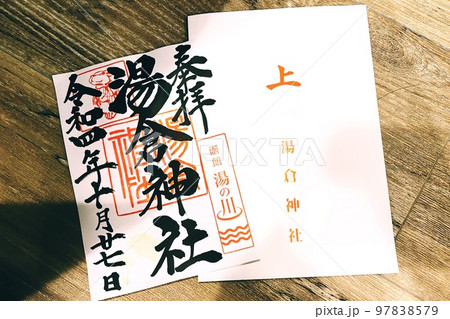 奉拝
湯倉神社
令和四年十月廿七日
函館
湯の川
上
湯倉神社
PIXTA
97838579